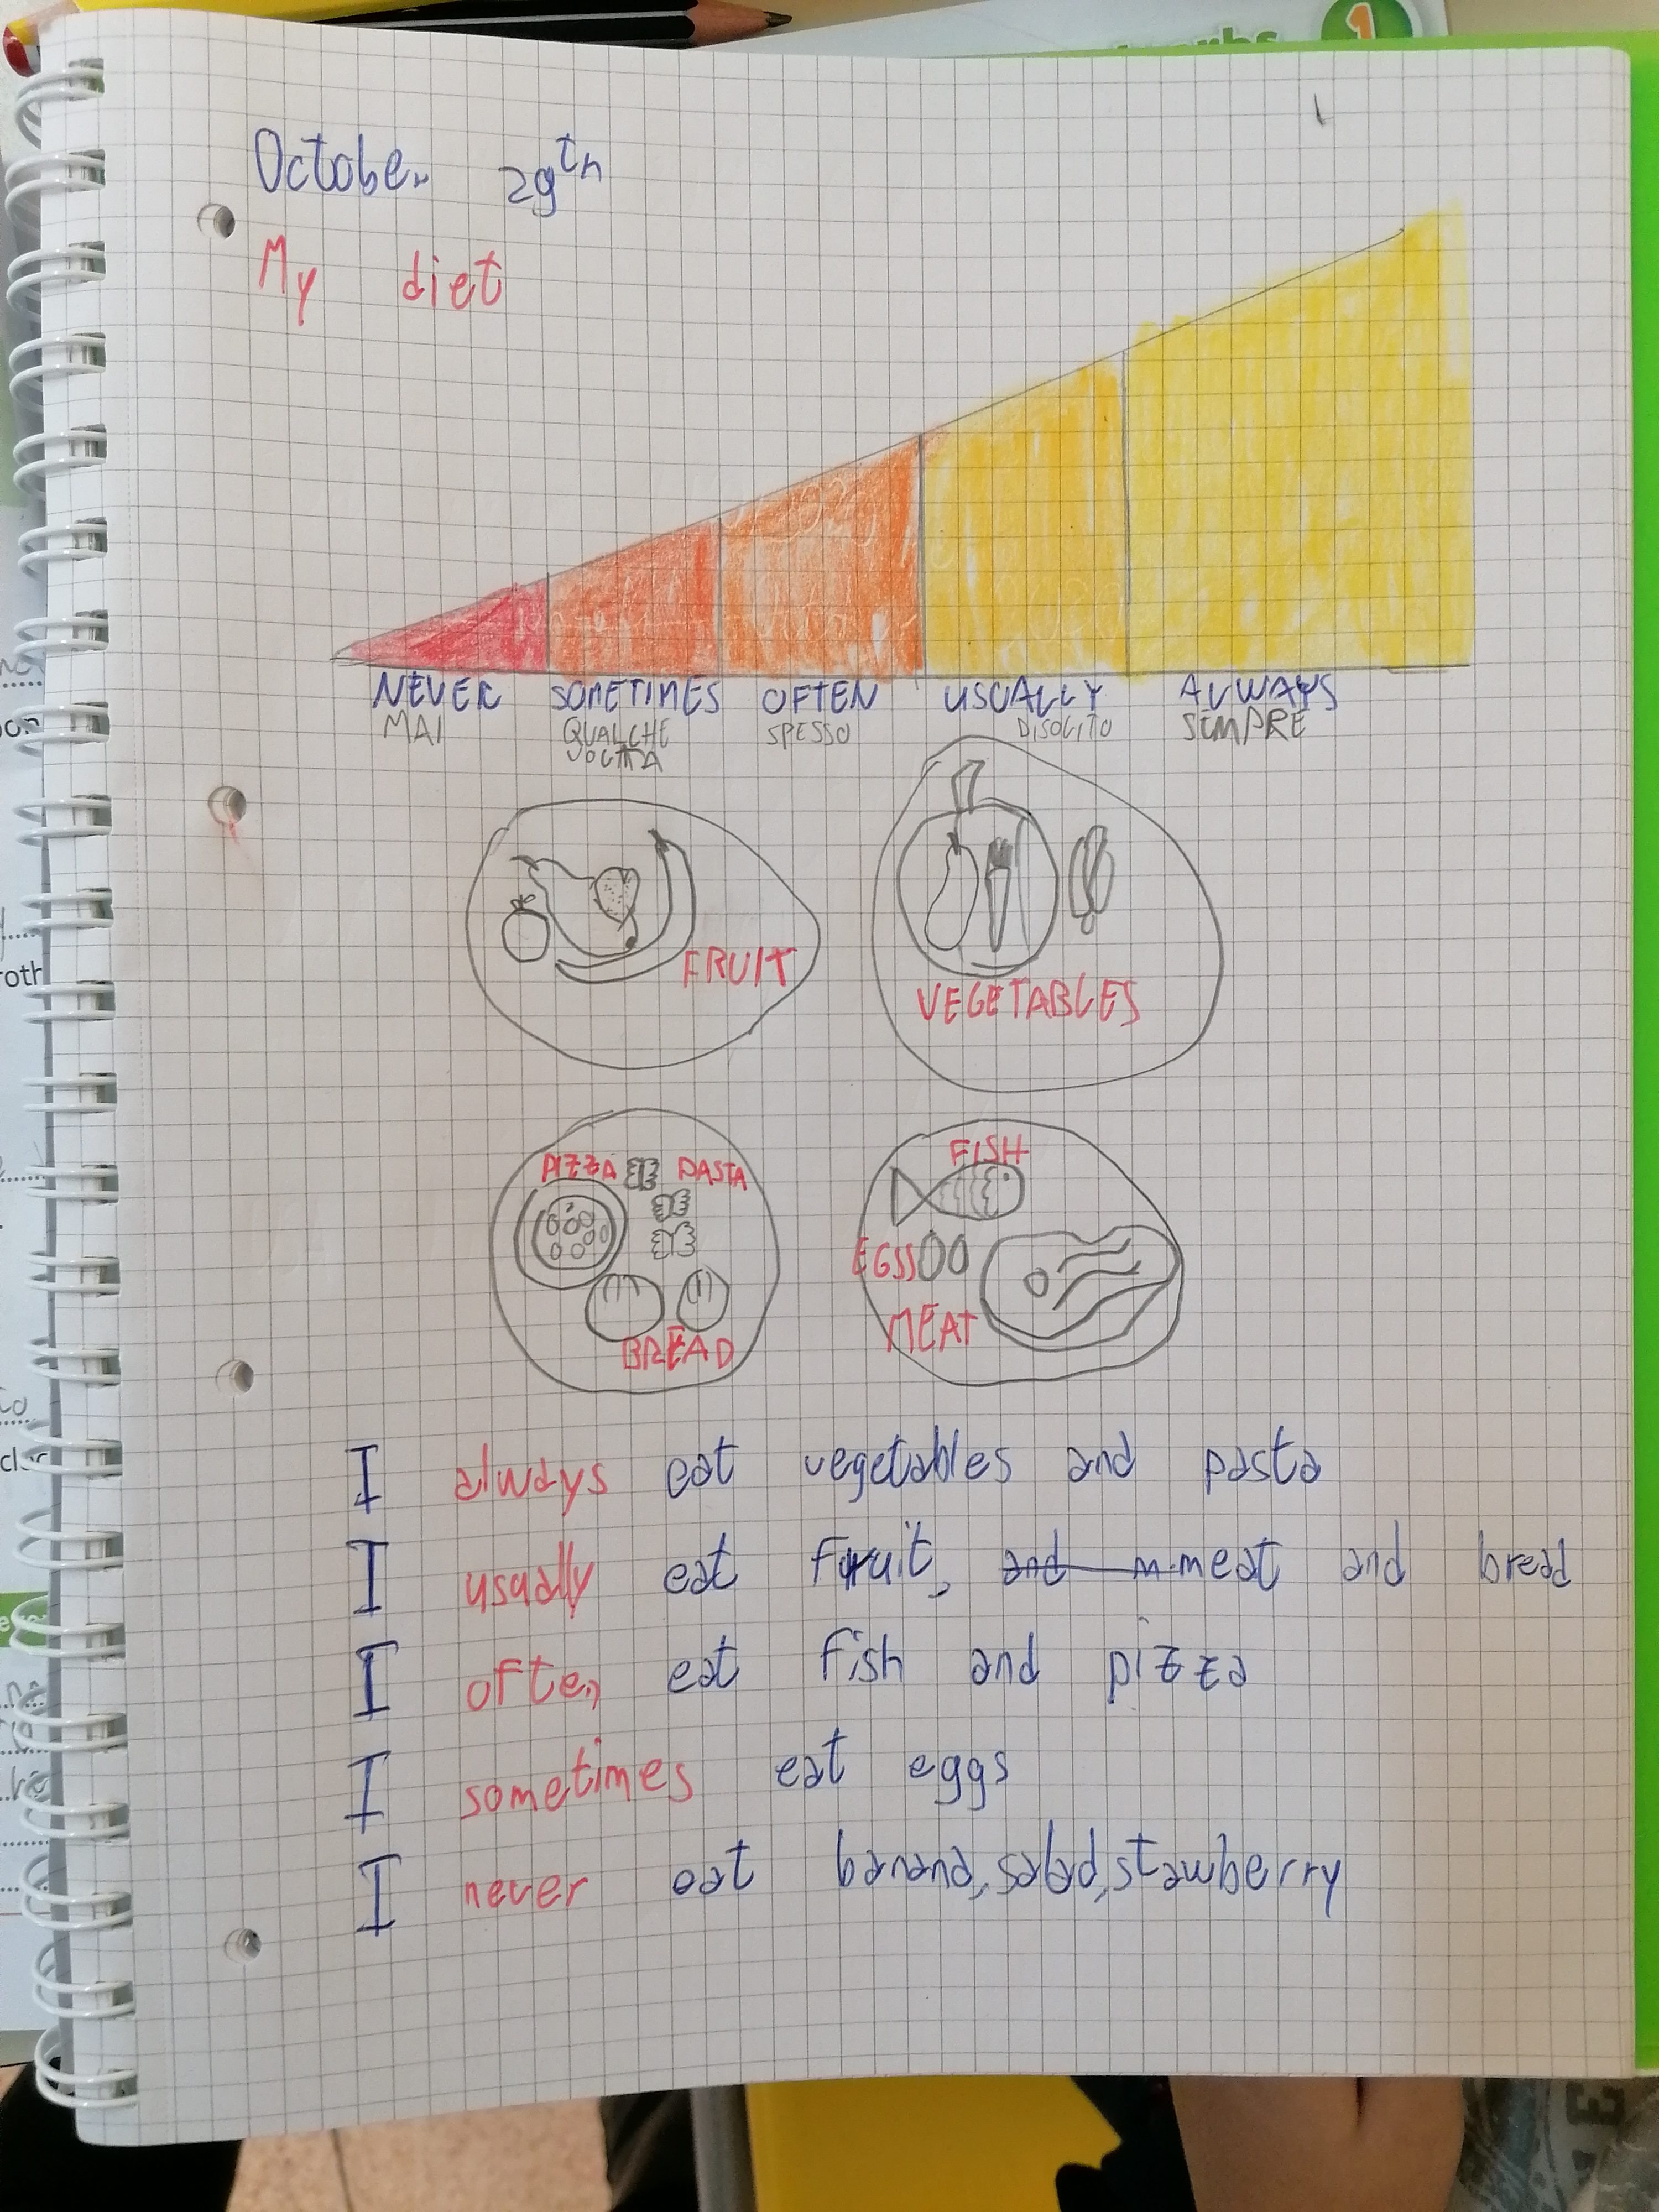 October 29th
My diet
NEVER SOMETIMES OFTEN USUALLY ALWAYS
MAI QUALCHE SPESSO DISOLITO SEMPRE
VOLTA
FRUIT
VEGETABLES
PIZZA PASTA
BREAD
FISH
EGSS
MEAT
I always eat vegetables and pasta
I usually eat fruit, and m meat and bread
I often eat fish and pizza
I sometimes eat eggs
I never eat banana, salad, stawberry
1